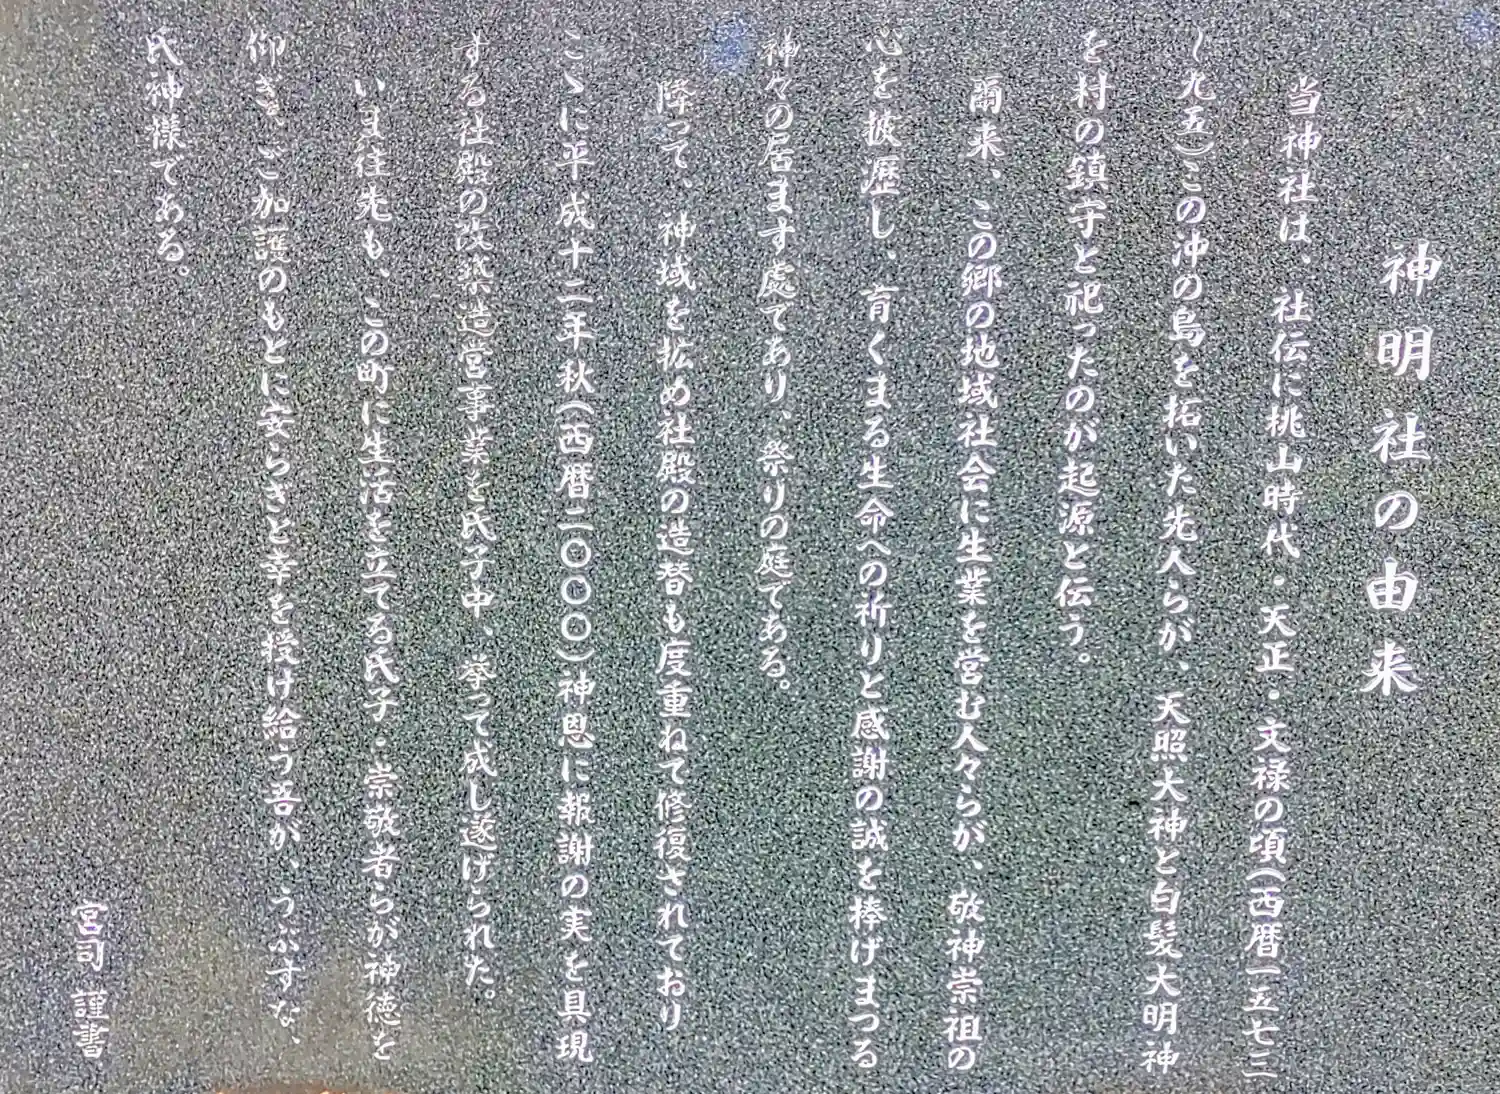 神明社の由来
当神社は、社伝に桃山時代・天正・文禄の頃(西暦一五七三
〜九五)この沖の島を拓いた先人らが、天照大神と白髪大明神
を村の鎮守と祀ったのが起源と伝う。
爾来、この郷の地域社会に生業を営む人々らが、敬神崇祖の
心を披瀝し、育くまる生命への祈りと感謝の誠を捧げまつる
神々の居ます處であり、祭りの庭である。
降って、神域を拡め社殿の造替も度重ねて修復されており
こゝに平成十二年秋(西暦二〇〇〇)神恩に報謝の実を具現
する社殿の改築造営事業を氏子中、挙って成し遂げられた。
いま往先も、この町に生活を立てる氏子・崇敬者らが神徳を
仰ぎ、ご加護のもとに安らぎと幸を授け給う吾が、うぶすな、
氏神様である。
宮司 謹書